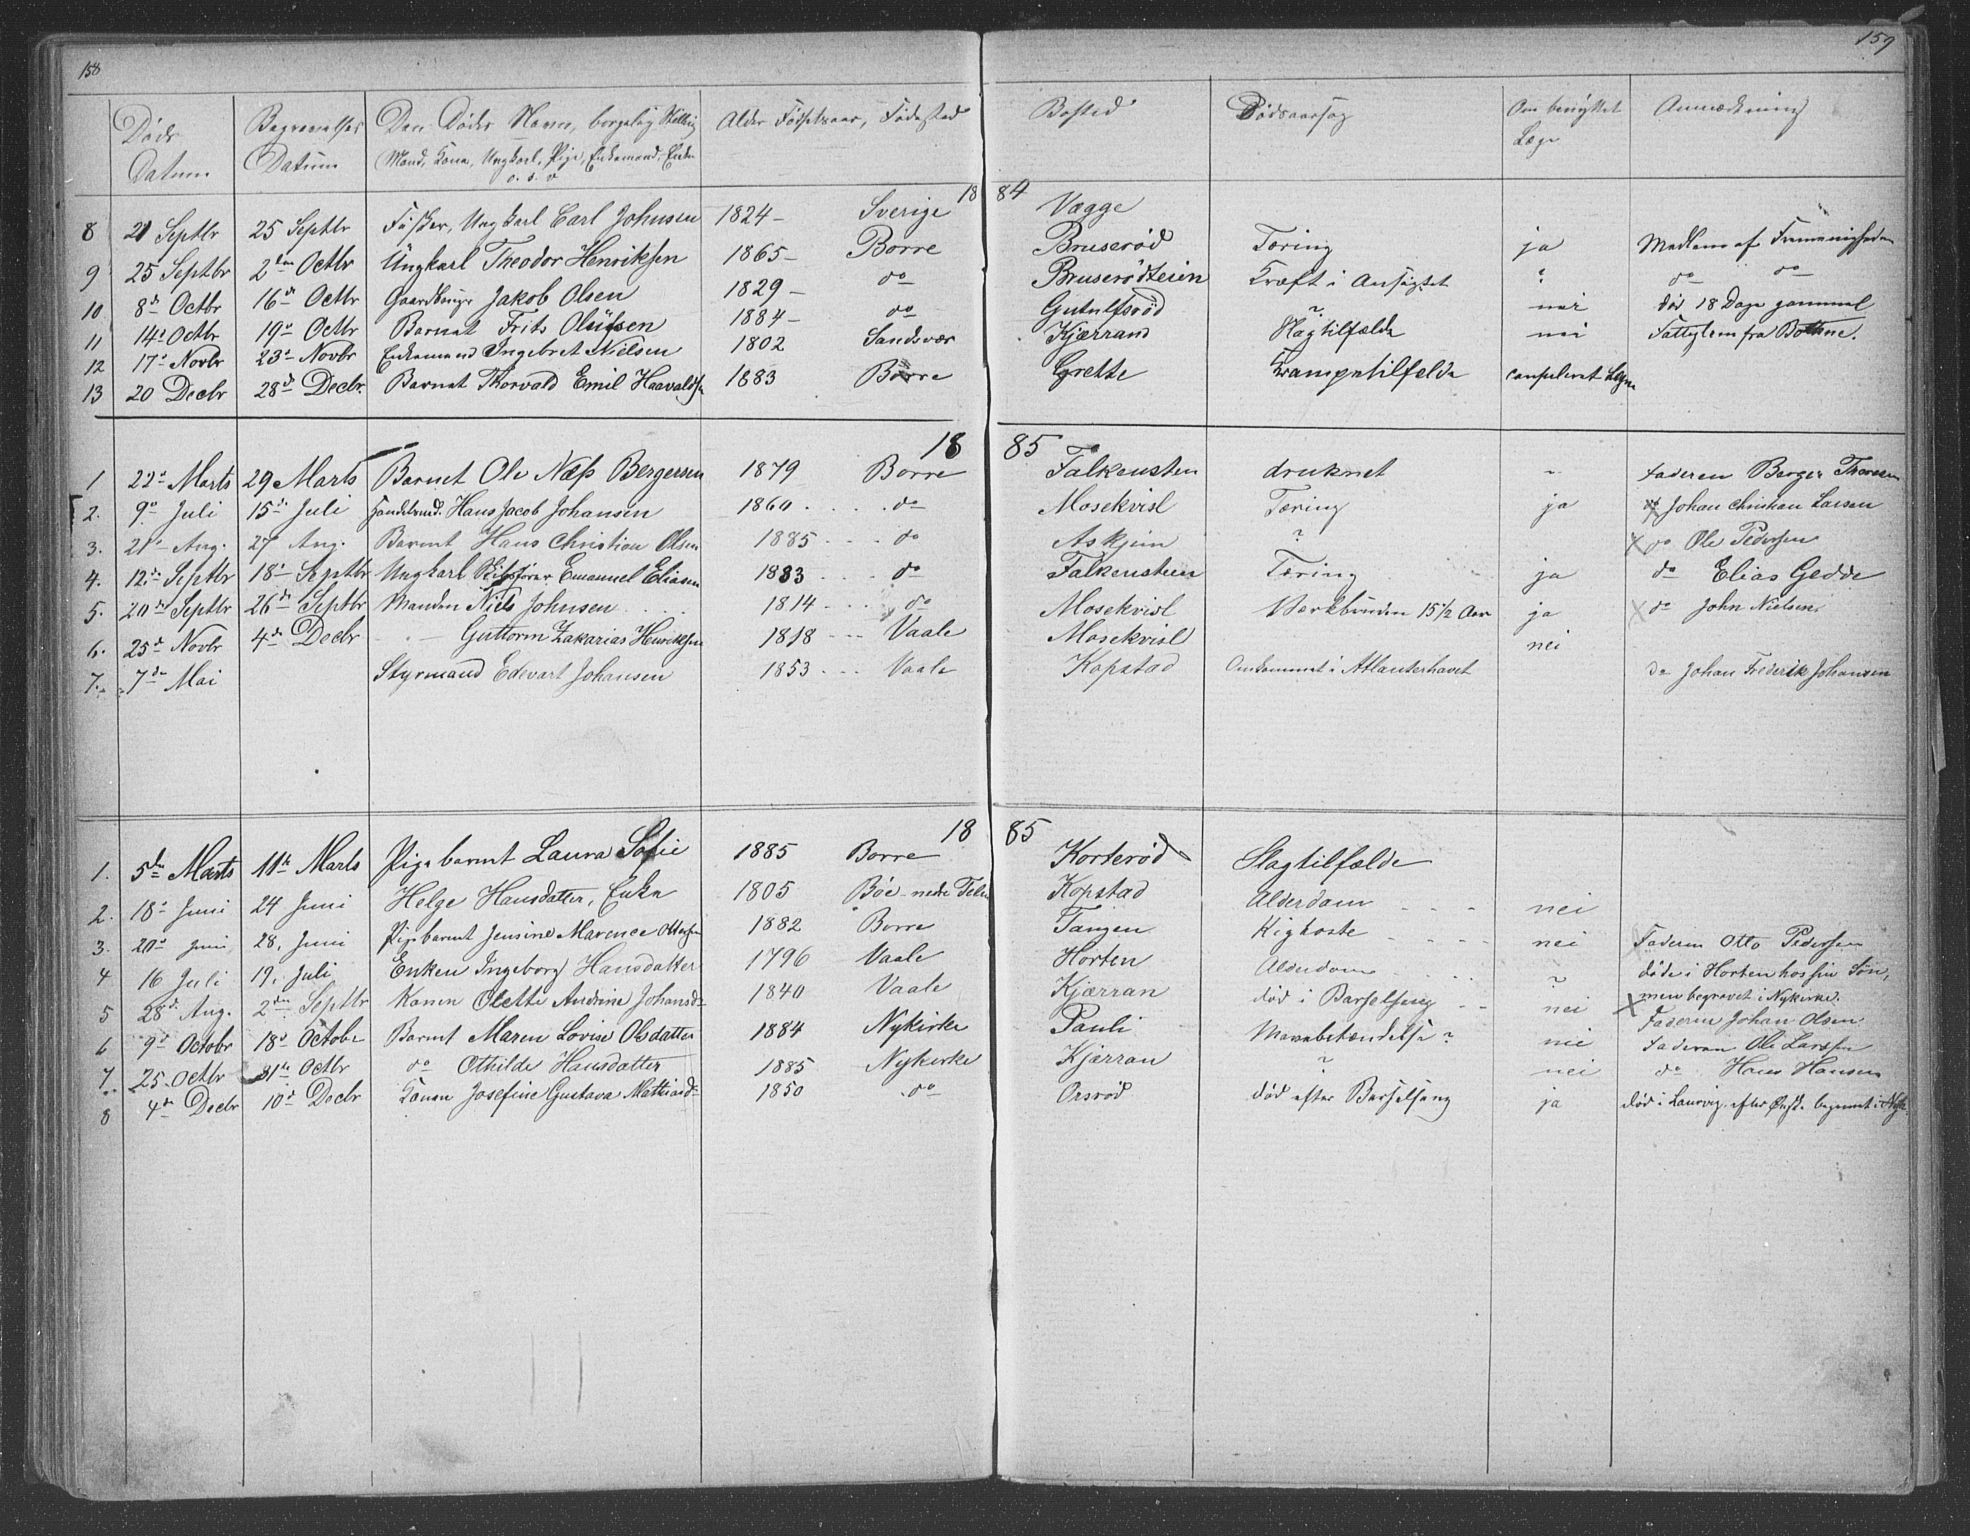 158
159
Døds Datum | Begravelses Datum | Den Dødes Navn, borgelig Stilling Mand, Kone, Ungkarl, Pige, Enkemand, Enke o. s. v | Alder Fødselsaar, Fødested | Bosted | Dødsaarsag | Om benyttet Læge | Anmærkning
18 84
8 | 21 Septbr | 25 Septbr | Fisker, Ungkarl Carl Johnsen | 1824 – | Sverige | Vagge
9 | 25 Septbr | 2den Octbr | Ungkarl Theodor Henriksen | 1865 – | Borre | Bruserød | Tæring | ja | Medlem af Frimenigheden
10 | 8de Octbr | 16de Octbr | Gaardbruger Jakob Olsen | 1829 – | do | Bruserødteien | Kræft i Ansigtet | " | do do
11 | 14de Octbr | 19de Octbr | Barnet Frits Olufsen | 1884 – | do | Gutulfsrød | ? | nei | dør 18 Dage gammel
12 | 17de Novbr | 23de Novbr | Enkemand Ingebret Nielsen | 1802 | Sandsvær | Kjærrand | Slagtilfælde | nei | Fattiglem fra Bottne.
13 | 20 Decbr | 28de Decbr. | Barnet Thorvald Emil Haavalds | 1883 | Borre | Grette | Krampetilfælde | consuleret Læge
18 85
1 | 22de Marts | 29 Marts | Barnet Ole Næss Bergersen | 1879 | Borre | Falkensten | druknet | " | Faderen Berger Thoresen
2. | 9de Juli | 15de Juli | Handelsmd. Hans Jacob Johansen | 1860 . | . do | Mosekvisl | Tæring | ja | do Johan Christian Larsen
3. | 21de Aug. | 27 Aug. | Barnet Hans Christian Olsen | 1885 . . . | do | Askjem | ? | X do Ole Pedersen
4. | 12de Septbr | 18de Septbr | Ungkarl Skibsfører Emanuel Eliasen | 1883 . . . | do | Falkensteen | Tæring | ja | do Elias Gedde
5. | 20de Septbr | 26de Septbr | Manden Niels Johnsen . . . | 1814 . . . | do | Mosekvisl | Værkbruden 15 1/2 Aar | ja | X do John Nielsen.
6. | 25de Novbr | 4de Decbr | – Guttorm Zakarias Henriksen | 1818 . . . | Vaale | Mosekvisl | nei
7. | 7de Mai | Styrmand Edevart Johansen | 1853 . . . | Vaale | Kopstad | Omkommet i Atlanterhavet | do Johan Frederik Johansen
18 85
1. | 5de Marts | 11de Marts | Pigebarnet Laura Sofie | 1885 | Borre | Korterød | Slagtilfælde
2. | 18de Juni | 24 Juni | Helge Hansdatter, Enke | 1805 | Bøe nedre Telem | Kopstad | Alderdom . . . | nei
3. | 20de Juni | 28. Juni | Pigebarnet Jensine Marence Ottersen | 1882 | Borre | Tangen | Kighoste . . . | nei | Faderen Otto Pedersen
4 | 16 Juli | 19. Juli | Enken Ingeborg Hansdatter | 1796 | Vaale | Horten | Alderdom . . . | " | døde i Horten hos sin Søn, men begravet i Nykirke.
5 | 28de Aug. | 2den Septbr | Konen Olette Andrine Johansd: | 1840 | Vaale | Kjærran | død i Barselseng | nei
6 | 9de Octobr | 18de Octobr | Barnet Maren Lovise Olsdatter | 1884 | Nykirke | Pauli | Mavebetændelse? | nei | X Faderen Johan Olsen
Faderen Ole Larssen
7. | 25 Octbr | 31te Octbr | do Othilde Hansdatter | 1885 | Nykirke | Kjærran | ? | nei | do Hans Hansen
8 | 4de Decbr | 10de Decbr | Konen Josefine Gustava Mathiasd: | 1850 | do | Orsrød | død efter Barselseng | ja | død i Laurvig efter begravet i